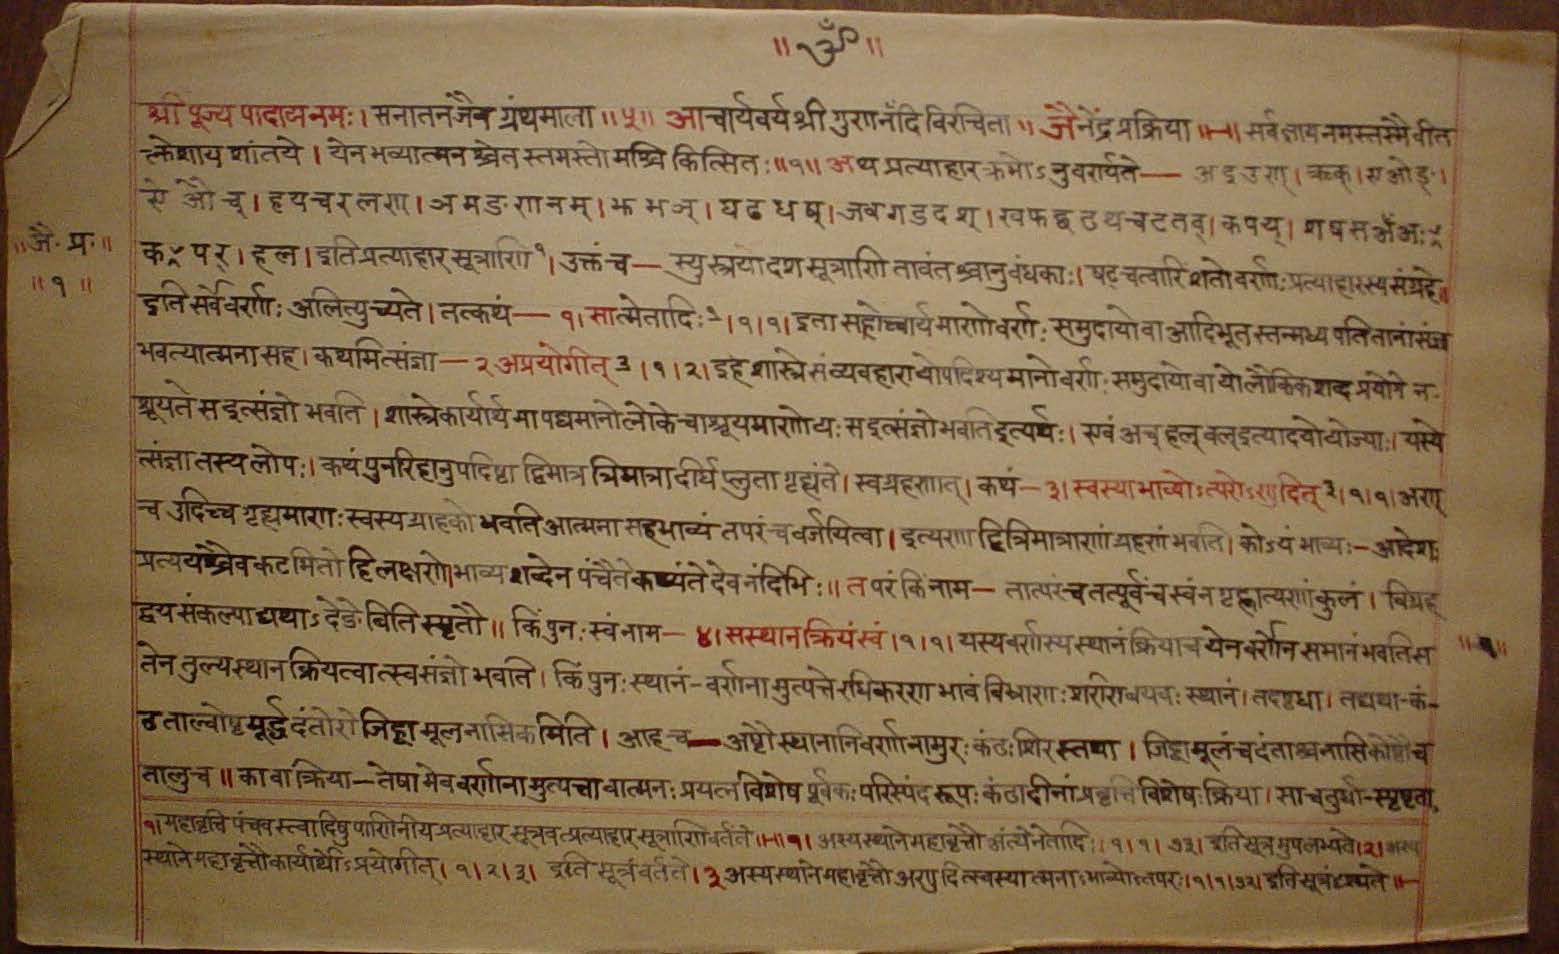 ॥ ॐ ॥
श्री पूज्य पादाय नमः। सनातनजैन ग्रंथमाला ॥ ५॥ आचार्यवर्य श्री गुणनंदि विरचिता ॥ जैनेंद्र प्रक्रिया ॥ सर्वज्ञाय नमस्तस्मै वीत
क्लेशाय शांतये । येन भव्यात्मनश्चेतस्तमस्तोमश्चिकित्सितः ॥१॥ अथ प्रत्याहारक्रमोऽनुवर्ण्यते — अइउण्। ऋक्। एओङ्।
ऐऔच्। हयवरलण्। ञमङणनम्। झभञ्। घढधष्। जबगडदश्। खफछठथचटतव्। कपय्। शषसअँअः
॥जै॰ प्रः॥
॥१॥
क ᳵ पर्। हल्। इति प्रत्याहार सूत्राणि १। उक्तं च — स्युस्त्रयोदश सूत्राणि तावंतश्चानुबंधकाः। षट् चत्वारिंशतो वर्णाः प्रत्याहारस्य संग्रहे॥
इति सर्वे वर्णाः अलित्युच्यते। तत्कथं — १। सात्मेतादिः २।१।१। इता सहोच्चार्यमाणो वर्णः समुदायो वा आदिभूतस्तन्मध्य पतितानां संज्ञा
भवत्यात्मना सह। कथमित्संज्ञा — २ अप्रयोगीत् ३।१।२। इह शास्त्रे संव्यवहारायोपदिश्यमानो वर्णः समुदायो वा यो लौकिक शब्द प्रयोगे न
श्रूयते स इत्संज्ञो भवति। शास्त्रे कार्यार्थमापद्यमानो लोके चाश्रूयमाणो यः स इत्संज्ञो भवति इत्यर्थः। एवं अच् हल् वल् इत्यादयो योज्याः। यस्ये
त्संज्ञा तस्य लोपः। कथं पुनरिहानुपदिष्टा द्विमात्र त्रिमात्रा दीर्घ प्लुता गृह्यंते। स्वग्रहणात्। कथं — ३। स्वस्याभाव्योऽत्परोऽणुदित् ३।१।१। अण्
च उदिच्च गृह्यमाणः स्वस्य ग्राहको भवति आत्मना सह भाव्यं तपरं च वर्जयित्वा। इत्यणा द्वित्रिमात्राणां ग्रहणं भवति। कोऽयं भाव्यः — आदेशः
प्रत्ययश्चैव कटमितो द्विलक्षणो भाव्य शब्देन पंचैते कथ्यंते देवनंदिभिः॥ तपरं किं नाम — तात्परं च तत्पूर्वं च स्वं न गृह्णात्यणं कुलं। विग्रह
द्वय संकल्पाद्यथाऽदेङेबिति स्मृतौ॥ किं पुनः स्वं नाम — ४। सस्थानक्रियं स्वं।१।१। यस्य वर्णस्य स्थानं क्रिया च येन वर्णेन समानं भवति स
॥१॥
तेन तुल्यस्थान क्रियत्वात्स्वसंज्ञो भवति। किं पुनः स्थानं — वर्णानामुत्पत्तेरधिकरण भावं बिभ्राणः शरीरावयवः स्थानं। तदष्टधा। तद्यथा-कं-
ठताल्वोष्ठमूर्द्धदंतोरो जिह्वामूलनासिकमिति। आह च — अष्टौ स्थानानि वर्णानामुरः कंठः शिरस्तथा। जिह्वामूलं च दंताश्च नासिकोष्ठौ च
तालु च॥ का वा क्रिया — तेषामेव वर्णानामुत्पत्तावात्मनः प्रयत्न विशेष पूर्वकः परिस्पंद रूपः कंठादीनां प्रवृत्ति विशेषः क्रिया। सा चतुर्धा-स्पृष्टता,
१। महावृत्ति पंचवस्त्वादिषु पाणिनीय प्रत्याहार सूत्रवत्प्रत्याहार सूत्राणि वर्तंते॥ १। अस्य स्थाने महावृत्तौ अंत्येनेतादिः।१।१।७३। इति सूत्रमुपलभ्यते। २। अस्य
स्थाने महावृत्तौ कार्यार्थोऽप्रयोगीत्।१।२।३। इति सूत्रं वर्तते। ३ अस्य स्थाने महावृत्तौ अणुदित्स्वस्यात्मनाऽभाव्योऽतपरः।१।१।७२। इति सूत्रं दृश्यते॥